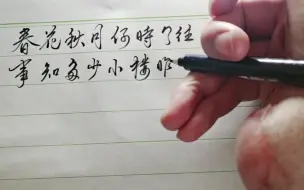 春花秋月何時了往
事知多少小楼昨